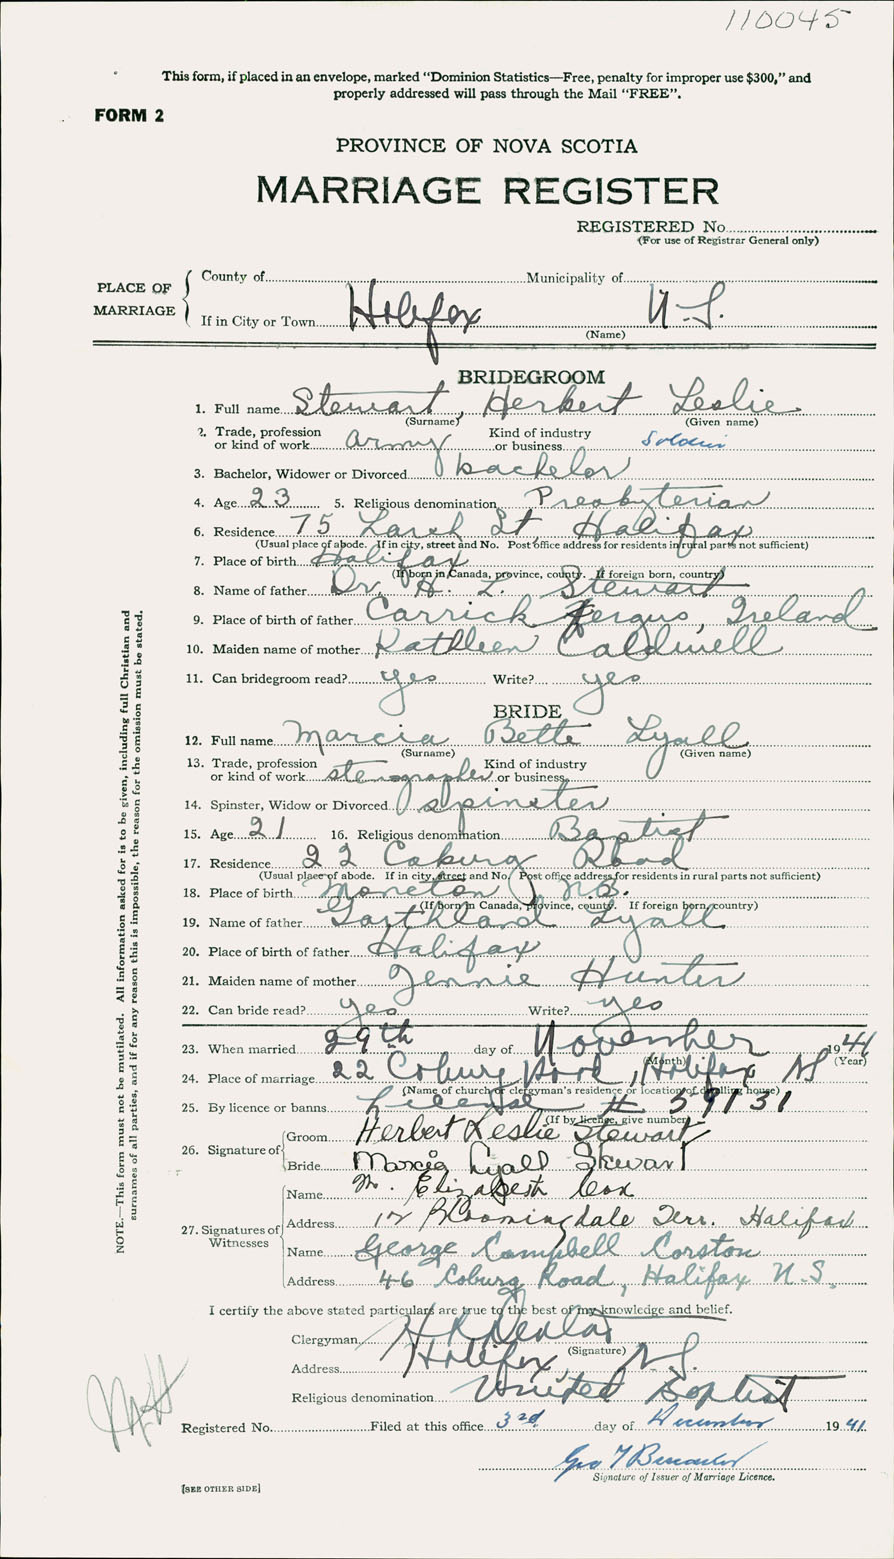 110045
This form, if placed in an envelope, marked “Dominion Statistics—Free, penalty for improper use $300,” and
properly addressed will pass through the Mail “FREE”.
FORM 2
PROVINCE OF NOVA SCOTIA
MARRIAGE REGISTER
REGISTERED No.
(For use of Registrar General only)
PLACE OF MARRIAGE
County of Municipality of
If in City or Town Halifax N.S.
(Name)
BRIDEGROOM
1. Full name Stewart, Herbert Leslie
(Surname) (Given name)
2. Trade, profession or kind of work army Kind of industry or business Soldier
3. Bachelor, Widower or Divorced bachelor
4. Age 23 5. Religious denomination Presbyterian
6. Residence 75 Larch St, Halifax
(Usual place of abode. If in city, street and No. Post office address for residents in rural parts not sufficient)
7. Place of birth Halifax
(If born in Canada, province, county. If foreign born, country)
8. Name of father Dr. H. L. Stewart
9. Place of birth of father Carrick Fergus, Ireland
10. Maiden name of mother Kathleen Caldwell
11. Can bridegroom read? yes Write? yes
BRIDE
12. Full name Marcia Bette Lyall
(Surname) (Given name)
13. Trade, profession or kind of work stenographer Kind of industry or business
14. Spinster, Widow or Divorced spinster
15. Age 21 16. Religious denomination Baptist
17. Residence 22 Coburg Road
(Usual place of abode. If in city, street and No. Post office address for residents in rural parts not sufficient)
18. Place of birth Moncton, N.B.
(If born in Canada, province, county. If foreign born, country)
19. Name of father Garthland Lyall
20. Place of birth of father Halifax
21. Maiden name of mother Jennie Hunter
22. Can bride read? yes Write? yes
23. When married 29th day of November 1941
(Month) (Year)
24. Place of marriage 22 Coburg Road, Halifax NS
(Name of church or clergyman's residence or location of dwelling house)
25. By licence or banns License # 59131
(If by license, give number)
26. Signature of
Groom Herbert Leslie Stewart
Bride Marcia Lyall Stewart
27. Signatures of Witnesses
Name M. Elizabeth Cox
Address 12 Bloomingdale Terr. Halifax
Name George Campbell Corston
Address 46 Coburg Road, Halifax N.S.
I certify the above stated particulars are true to the best of my knowledge and belief.
Clergyman
(Signature)
Address Halifax, N.S.
Religious denomination United Baptist
Registered No. Filed at this office 3rd day of December 1941
Geo T
Signature of Issuer of Marriage Licence.
[SEE OTHER SIDE]
NOTE.—This form must not be mutilated. All information asked for is to be given, including full Christian and
surnames of all parties, and if for any reason this is impossible, the reason for the omission must be stated.